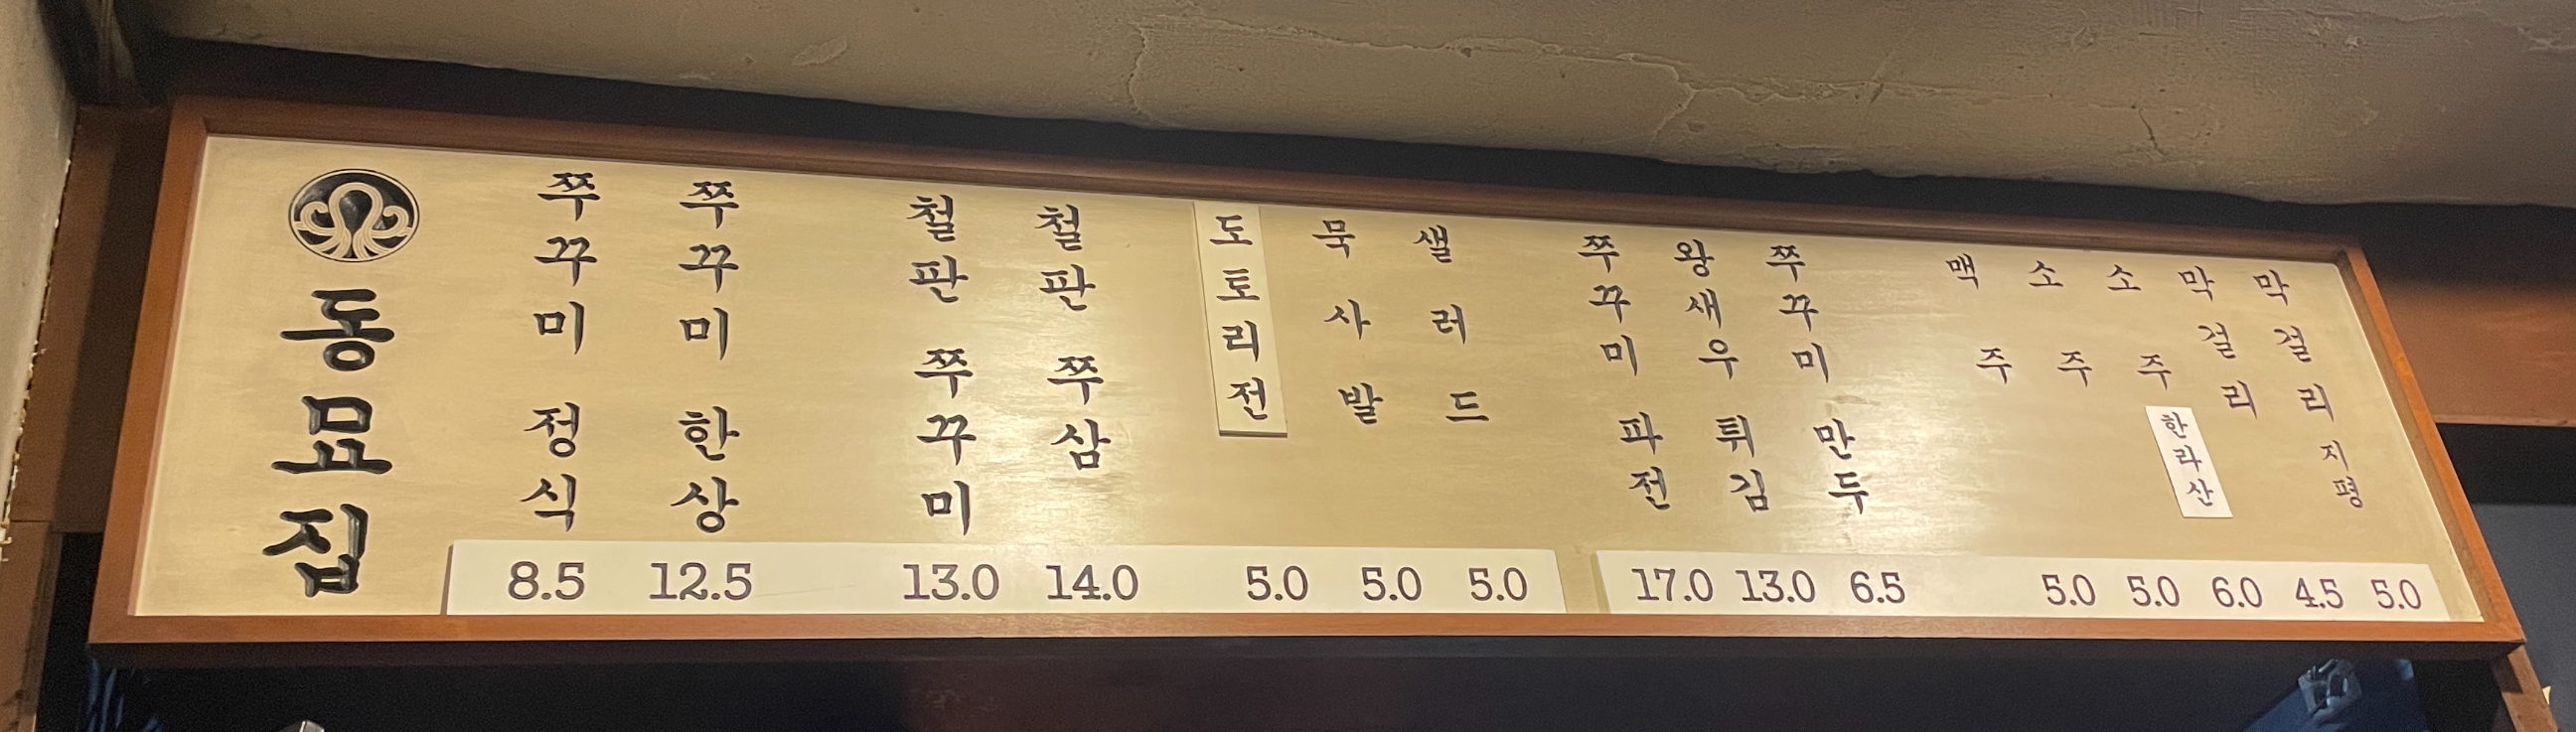 동묘집
쭈꾸미 정식 8.5
쭈꾸미 한상 12.5
철판 쭈꾸미 13.0
철판 쭈삼 14.0
도토리전 5.0
묵사발 5.0
샐러드 5.0
쭈꾸미 파전 17.0
왕새우 튀김 13.0
쭈꾸미 만두 6.5
맥주 5.0
소주 5.0
소주 한라산 6.0
막걸리 4.5
막걸리 지평 5.0